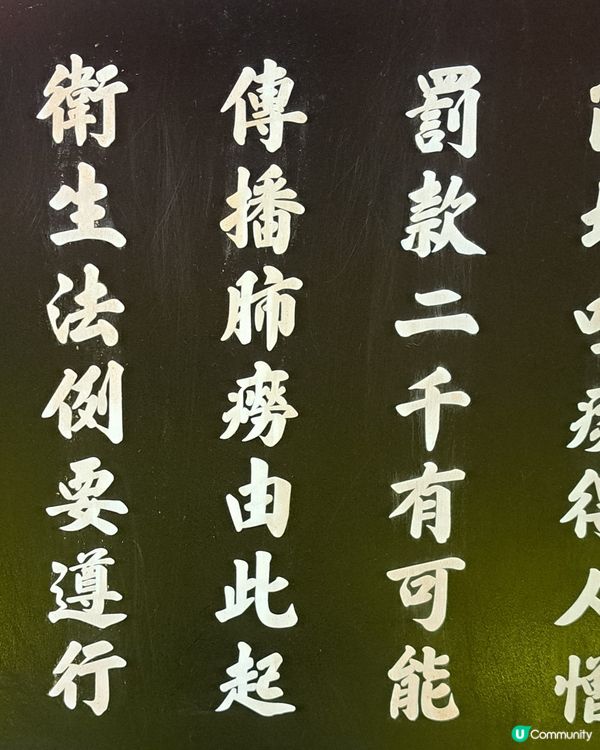 地吐痰得人憎
罰款二千有可能
傳播肺癆由此起
衛生法例要遵行
U Community